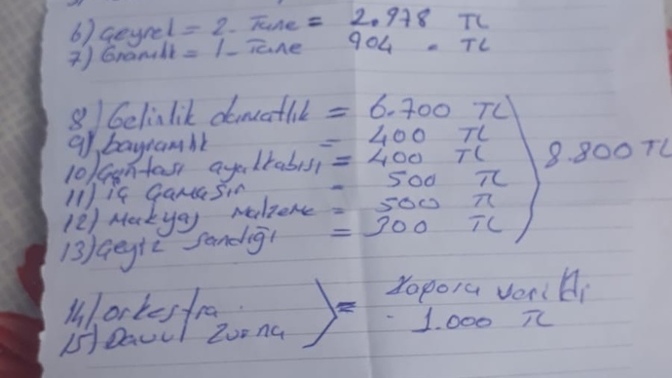 6) Çeyrek = 2. Tane = 2.978 TL
7) Gramlık = 1- Tane 904 . TL
8) Gelinlik damatlık = 6.700 TL
9) bayramlık = 400 TL
10) Çantası ayakkabısı = 400 TL
11) iç Çamaşır = 500 TL
12) Makyaj Malzeme = 500 TL
13) Çeyiz Sandığı = 300 TL
8.800 TL
14) orkestra
15) Davul Zurna
= Kapora verildi
1.000 TL